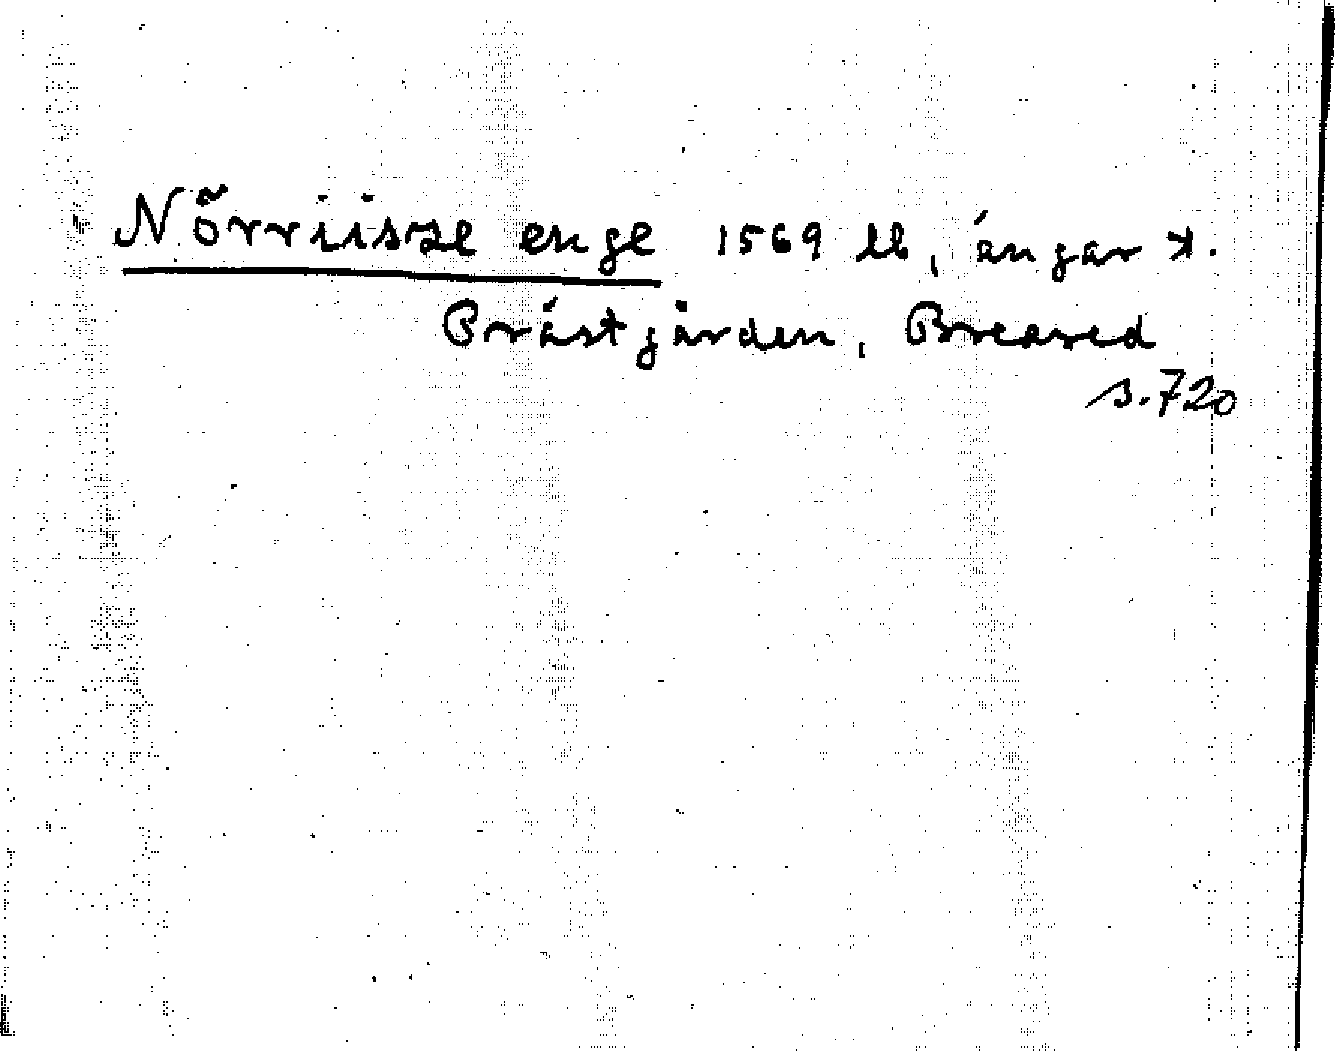 Nörriisze enge 1569 lb, ängar t.
Prästgården, Breared
s. 720